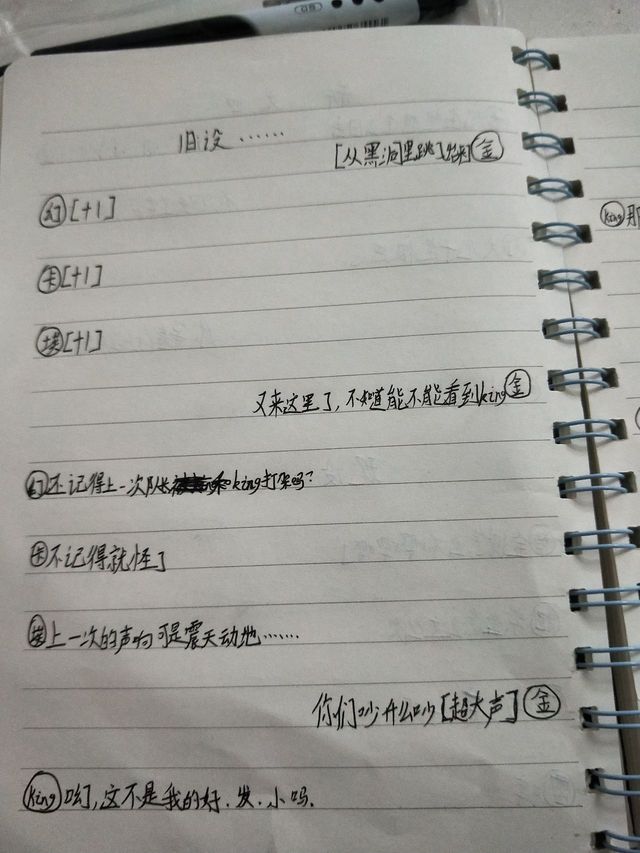 旧设……
[从黑洞里跳下来] 金
幻 [+1]
卡 [+1]
埃 [+1]
又来这里了，不知道能不能看到king 金
幻 还记得上一次队长和king打架吗？
卡 不记得就怪了
埃 上一次的声响可是震天动地……
你们吵什么吵[超大声] 金
king 呦，这不是我的好.发.小吗.
king 那